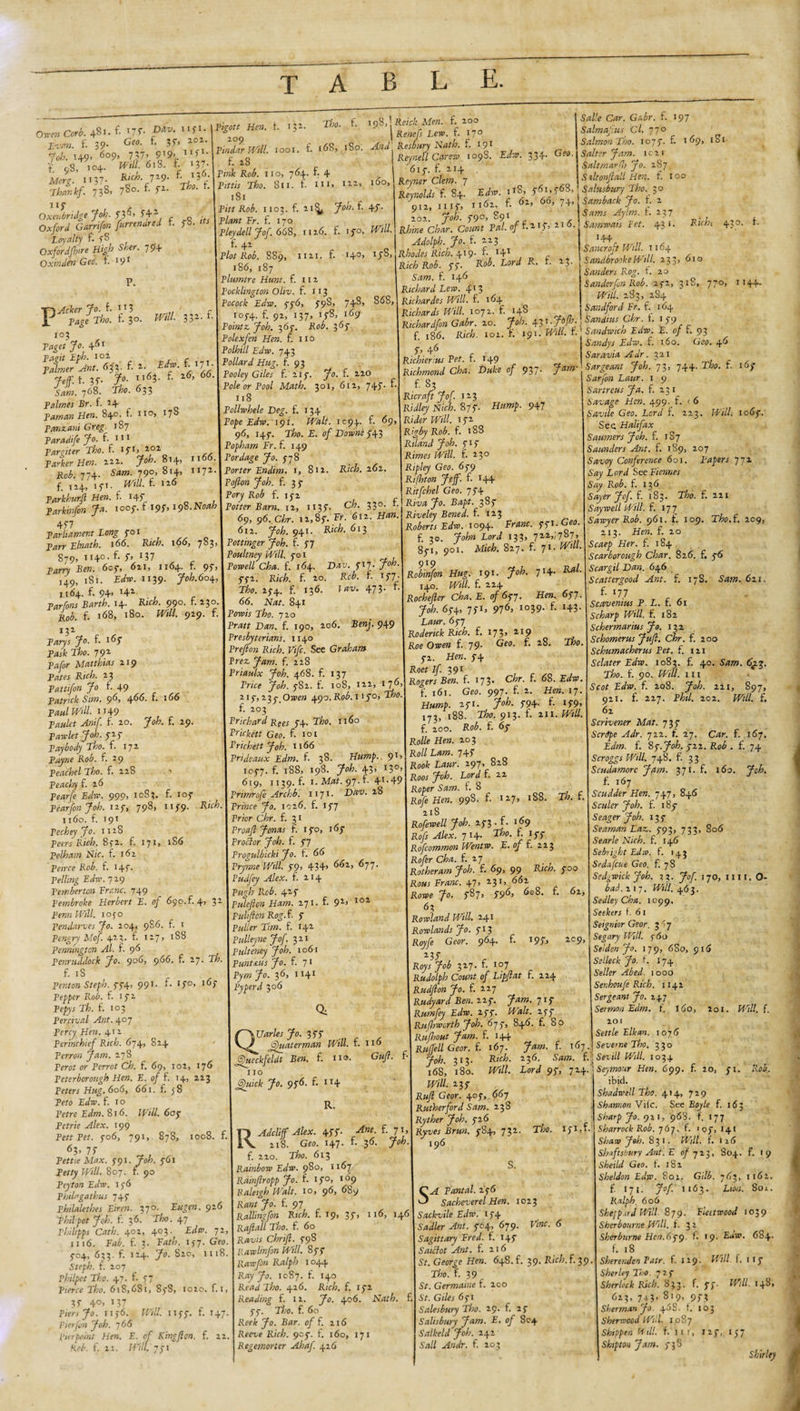 TABLE.
Owen Corb. 481. f. 175. Dav. 1151.
Evan. f. 39. Geo. f. 35, 202.
Joh. 149, 609, 737, 919, 1151.
f. 98, 104. Will. 618. f. 137.
Morg. 1137. Rich. 729. f. 136.
Thankf. 738, 780. f. 52. Tho. f.
115
Oxenbridge Joh. 536, 542
Oxford Garrison surrendred f. 58. its
Loyalty f. 58
Oxfordshire High Sher. 794
Oxinden Geo. f. 191
P.
PAcker Jo. f. 113
Page Tho. f. 30. Will. 332. f.
103
Paget Jo. 461
Pagit Eph. 102
Palmer Ant. 633. f. 2. Edw. f. 171.
Jeff. f. 35. Jo. 1163. f. 26, 66.
Sam. 768. Tho. 633
Palmes Br. f. 24
Paman Hen. 840. f. 110, 178
Panzani Greg. 187
Paradise Jo. f. 111
Pargiter Tho. f. 151, 202
Parker Hen. 222. Joh. 814, 1166.
Rob. 774. Sam. 790, 814, 1172.
f. 124, 151. Will. f. 126
Parkhurst Hen. f. 145
Parkinson Ja. 1005. f 195, 198. Noah
457
Parliament Long 501
Parr Elnath. 166. Rich. 166, 783,
879, 1140. f. 5, 137
Parry Ben. 605, 621, 1164. f. 95,
149, 181. Edw. 1139. Joh. 604,
1164. f. 94, 142
Parsons Barth. 14. Rich. 990. f. 230.
Rob. f. 168, 180. Will. 929. f.
132
Parys Jo. f. 165
Pask Tho. 792
Pasor Matthias 219
Pates Rich. 23
Pattison Jo f. 49
Patrick Sim. 96, 466. f. 166
Paul Will. 1149
Paulet Anis. f. 20. Joh. f. 29.
Pawlet Joh. 525
Paybody Tho. f. 172
Payne Rob. f. 29
Peachel Tho. f. 228
Peachy f. 26
Pearse Edw. 999, 1083. f. 105
Pearson Joh. 125, 798, 1159. Rich.
1160. f. 191
Pechey Jo. 1128
Peers Rich. 852. f. 171, 186
Pelham Nic. f. 162
Peirce Rob. f. 145.
Pelling Edw. 729
Pemberton Franc. 749
Pembroke Herbert E. of 690. f. 4, 32
Penn Will. 1050
Pendarves Jo. 204, 986. f. 1
Pengry Mos. 423. f. 127, 188
Pennington Al. f. 96
Penruddock Jo. 906, 966. f. 27. Th.
f. 18
Penton Steph. 554, 991. f. 150, 165
Pepper Rob. f. 152
Pepys Th. f. 103
Percival Ant. 407
Percy Hen. 412
Perinchief Rich. 674, 824
Perron Jam. 278
Perot or Perrot Ch. f. 69, 102, 176
Peterborough Hen. E. of f. 14, 223
Peters Hug. 606, 661. f. 58
Peto Edw. f. 10
Petre Edm. 816. Will. 605
Petrie Alex. 199
Pett Pet. 506, 791, 878, 1008. f.
63, 75
Pettie Max. 591. Joh. 561
Petty Will. 807. f. 90
Peyton Edw. 156
Philagathus 745
Philalethes Eiren. 370. Eugen. 926
Philpot Joh. f. 36. Tho. 47
Philipps Cath. 402, 403. Edw. 72,
1116. Fab. f. 3. Fath. 157. Geo.
504, 633. f. 124. Jo. 820, 1118.
Steph. f. 207
Philpot Tho. 47. f. 57
Pierce Tho. 618, 681, 858, 1020. f. 1,
35 40, 137
Piers Jo. 1156. Will. 1155. f. 147.
Pierson Joh. 766
Pierpoint Hen. E. of Kingston. f. 22.
Rob. f. 22. Will. 751
Pigott Hen. f. 132. Tho. f. 198,
209
Pindar Will. 1001. f. 168, 180. And
f. 28
Pink Rob. f 110, 764. f. 4
Pittis Tho. 811. f. 111, 122, 160,
181
Pitt Rob. 1103. f. 218, Joh. f. 45.
Plant Fr. f. 170
Pleydell Jos. 668, 1126. f. 150, Will.
f. 42
Plot Rob. 889, 1121. f. 140, 158,
186, 187
Plumtre Hunt. f. 112
Pocklington Oliv. f. 113
Pocock Edw. 556, 598, 748, 868,
1054. f. 92, 137, 158, 169
Pointz Joh. 365. Rob. 365
Polexfen Hen. f. 110
Polhill Edw. 743
Pollard Hug. f. 93
Pooley Giles f. 215. Jo. f. 220
Pole or Pool Math. 301, 612, 745. f.
118
Pollwhele Deg. f. 134
Pope Edw. 191. Walt. 1094. f. 69,
96, 145. Tho. E. of Downe 543
Popham Fr. f. 149
Pordage Jo. 578
Porter Endim. 1, 812. Rich. 262.
Posson Joh. f. 35
Pory Rob f. 152
Potter Barn. 12, 1135. Ch. 330. f.
69, 96. Chr. 12, 85. Fr. 612. Han.
612. Joh. 941. Rich. 613
Pottinger Joh. f. 57
Poultney Will. 501
Powell Cha. f. 164. Dav. 517. Joh.
552. Rich. f. 20. Rob. f. 157.
Tho. 254. f. 136. Vav. 473. f.
66. Nat. 841
Powis Tho. 720
Pratt Dan. f. 190, 206. Benj. 949
Presbyterians. 1140
Preston Rich. Visc. See Graham
Prez Jam. f. 228
Priaulx Joh. 468. f. 137
Price Joh. 582. f. 108, 122, 176,
215, 235. Owen 490. Rob. 1150, Tho.
f. 203
Prichard Rees 54. Tho. 1160
Prickett Geo. f. 101
Pritchett Joh. 1166
Prideaux Edm. f. 38. Hump. 91,
1057. f. 188, 198. Joh. 43, 130,
619, 1139. f. 1. Mat. 97. f. 41. 49
Primrose Archb. 1171. Dav. 28
Prince Jo. 1026. f. 157
Prior Chr. f. 31
Proast Jonas f. 150, 165
Proctor Joh. f. 57
Progulbicki Jo. f. 66
Prynne Will. 59, 434, 662, 677.
Pudsey Alex. f. 214
Pugh Rob. 425
Puleston Ham. 271. f. 92, 102
Pulisten Rog. f. 5
Puller Tim. f. 142
Pulleyne Jos. 321
Pulteney Joh. 1061
Puntæus Jo. f. 71
Pym Jo. 36, 1141
Pyperd 306
Q.
QUarles Jo. 355
Quaterman Will. f. 116
Queckfeldt Ben. f. 110. Gust. f.
110
Quick Jo. 956. f. 114
R.
RAdcliff Alex. 455. Ant. f. 71,
218. Geo. 147. f. 36. Joh.
f. 220. Tho. 613
Rainbow Edw. 980, 1167
Rainstropp Jo. f. 150, 109
Raleigh Walt. 10, 96, 689
Rant Jo. f. 97
Rallingson Rich. f. 19, 35, 116, 146
Rastall Tho. f. 60
Ravis Christ. 598
Rawlinson Will. 855
Rawson Ralph 1044
Ray Jo. 1087. f. 140
Read Tho. 426. Rich. f. 152
Reading f. 12. Jo. 406. Nath. f.
55. Tho. f. 60
Reek Jo. Bar. of f. 216
Reeve Rich. 905. f. 160, 171
Regemorter Ahas. 426
Reick Men. f. 200
Renefs Lew. f. 170
Resbury Nath. f. 191
Reynell Carew 1098. Edw. 334. Geo.
615. f. 214
Reyner Clem. 7
Reynolds f. 84. Edw. 118, 561, 568,
912, 1115, 1162. f. 62, 66, 74,
202. Joh. 590, 891
Rhine Char. Count Pal. of f. 215, 216.
Adolph. Jo. f. 223
Rhodes Rich. 419. f. 141
Rich Rob. 55. Rob. Lord R. f. 23.
Sam. f. 146
Richard Lew. 413
Richardes Will. f. 164
Richards Will. 1072. f. 148
Richardson Gabr. 20. Joh. 431. Josh.
f. 186. Rich. 101. f. 191. Will. f.
5, 46
Richerius Pet. f. 149
Richmond Cha. Duke of 937. Jam.
f. 83
Ricraft Jos. 123
Ridley Nich. 875. Hump. 947
Rider Will. 152
Rigby Rob. f. 188
Riland Joh. 515
Rimes Will. f. 230
Ripley Geo. 659
Rishton Jeff. f. 144
Ritschel Geo. 754
Riva Jo. Bapt. 385
Riveley Bened. f. 123
Roberts Edw. 1094. Franc. 551. Geo.
f. 30. John Lord 133, 722, 787,
851, 901. Mich. 827. f. 71. Will.
919
Robinson Hug. 191. Joh. 714. Ral.
140. Will. f. 224
Rochester Cha. E. of 657. Hen. 657.
Joh. 654, 751, 976, 1039. f. 143.
Laur. 657
Roderick Rich. f. 173, 219
Roe Owen f. 79. Geo. f. 28. Tho.
52. Hen. 54
Roet If. 391
Rogers Ben. f. 173. Chr. f. 68. Edw.
f. 161. Geo. 997. f. 2. Hen. 17.
Hump. 251. Joh. 594. f. 159,
173, 188. Tho. 913. f. 211. Will.
f. 200. Rob. f. 65
Rolle Hen. 203
Roll Lam. 745
Rook Laur. 297, 828
Roos Joh. Lord f. 22
Roper Sam. f. 8
Rose Hen. 998. f. 127, 188. Th. f.
218
Rosewell Joh. 253. f. 169
Ross Alex. 714. Tho. f. 155
Roscommon Wentw. E. of f. 223
Roser Cha. f. 27
Rotheram Joh. f. 69, 99 Rich. 500
Rous Franc. 47, 231, 662
Rowe Jo. 587, 596, 608. f. 62,
63
Rowland Will. 241
Rowlands Jo. 513
Royse Geor. 964. f. 195, 209,
235
Roys Job 327. f. 107
Rudolph Count of Lipstat f. 224
Rudston Jo. f. 227
Rudyard Ben. 225. Jam. 715
Rumsey Edw. 255. Walt. 255
Rushworth Joh. 675, 846. f. 80
Rushout Jam. f. 144
Russell Geor. f. 167. Jam. f. 167.
Joh. 313. Rich. 236. Sam. f.
168, 180. Will. Lord 95, 724.
Will. 235
Rust Geor. 405, 667
Rutherford Sam. 238
Ryther Joh. 526
Ryves Brun. 584, 732. Tho. 151. f.
196
S.
SA Pantal. 256
Sacheverel Hen. 1023
Sackvile Edw. 154
Sadler Ant. 504, 679. Vinc. 6
Sagittary Fred. f. 145
Saillot Ant. f. 216
St. George Hen. 648. f. 39. Rich. f. 39.
Tho. f. 39
St. Germaine f. 200
St. Giles 651
Salesbury Tho. 29. f. 25
Salisbury Jam. E. of 804
Salkeld Joh. 242
Sall Andr. f. 203
Salle Car. Gabr. f. 197
Salmasius Cl. 770
Salmon Tho. 1075. f. 169, 181
Salter Jam. 1021
Saltmarsh Jo. 287
Saltonstall Hen. f. 100
Salusbury Tho. 30
Samback Jo. f. 2
Sams Aylm. f. 237
Samwais Pet. 431. Rich. 430. f.
144
Sancroft Will. 1164
Sandbrooke Will. 233, 610
Sanders Rog. f. 20
Sanderson Rob. 252, 318, 770, 1144.
Will. 283, 284
Sandford Fr. f. 164
Sandius Chr. f. 159
Sandwich Edw. E. of f. 93
Sandys Edw. f. 160. Geo. 46
Saravia Adr. 321
Sargeant Joh. 73, 744. Tho. f. 165
Sarson Laur. 19
Sartreus Ja. f. 231
Savage Hen. 499. f. 16
Savile Geo. Lord f. 223. Will. 1065.
See Halifax
Saumers Joh. f. 187
Saunders Ant. f. 189, 207
Savoy Conference 601. Papers 772
Say Lord See Fiennes
Say Rob. f. 136
Sayer Jos. f. 183. Tho. f. 221
Saywell Will. f. 177
Sawyer Rob. 961. f. 109. Tho. f. 209,
213. Hen. f. 20
Scaep Her. f. 184
Scarborough Char. 826. f. 56
Scargil Dan. 646
Scattergood Ant. f. 178. Sam. 621.
f. 177
Scavenius P L. f. 61
Scharp Will. f. 182
Schermarius Jo. 132
Schomerus Just. Chr. f. 200
Schumacherus Pet. f. 121
Sclater Edw. 1083. f. 40. Sam. 623.
Tho. f. 90. Will. 111
Scot Edw. f. 208. Joh. 221, 897,
921. f. 227. Phil. 202. Will. f.
62
Scrivener Mat. 735
Scrope Adr. 722. f. 27. Car. f. 167.
Edm. f. 85. Joh. 522. Rob. f. 74
Scroggs Will. 748. f. 33
Scudamore Jam. 371. f. 160. Joh.
f. 167
Scudder Hen. 747, 846
Sculer Joh. f. 185
Seager Joh. 135
Seaman Laz. 593, 733, 806
Searle Nich. f. 146
Sebright Edw. f. 143
Sedascue Geo. f. 78
Sedgwick Joh. 23. Jos. 170, 1111. O-
bad. 217. Will. 463.
Sedley Cha. 1099.
Seekers f. 61
Seignior Geor. 367
Segary Will. 560
Selden Jo. 179, 680, 916
Selleck Jo. f. 174
Seller Abed. 1000
Senhouse Rich. 1142
Sergeant Jo. 247
Sermon Edm. f. 160, 201. Will. f.
201
Settle Elkan. 1076
Severne Tho. 330
Sevill Will. 1034
Seymour Hen. 699. f. 20, 51. Rob.
ibid.
Shadwell Tho. 414, 729
Shannon Visc. See Boyle f. 163
Sharp Jo. 921, 968. f. 177
Sharrock Rob. 767. f. 105, 141
Shaw Joh. 831. Will. f. 126
Shaftsbury Ant. E of 723, 804. f. 19
Sheild Geo. f. 182
Sheldon Edw. 802. Gilb. 763, 1162.
f. 171. Jos. 1163. Lion. 802.
Ralph 606
Sheppard Will. 879. Fleetwood 1039
Sherbourne Will. f. 32
Sherburne Hen. 659. f. 19. Edw. 684.
f. 18
Sherenden Patr. f. 129. Will f. 115
Sherley Tho. 725
Sherlock Rich. 833. f. 55. Will. 148,
623, 743, 819, 953
Sherman Jo. 468. f. 103
Sherwood Will. 1087
Shippen Will. f. 111, 125, 157
Shipton Jam. 538
Shirley